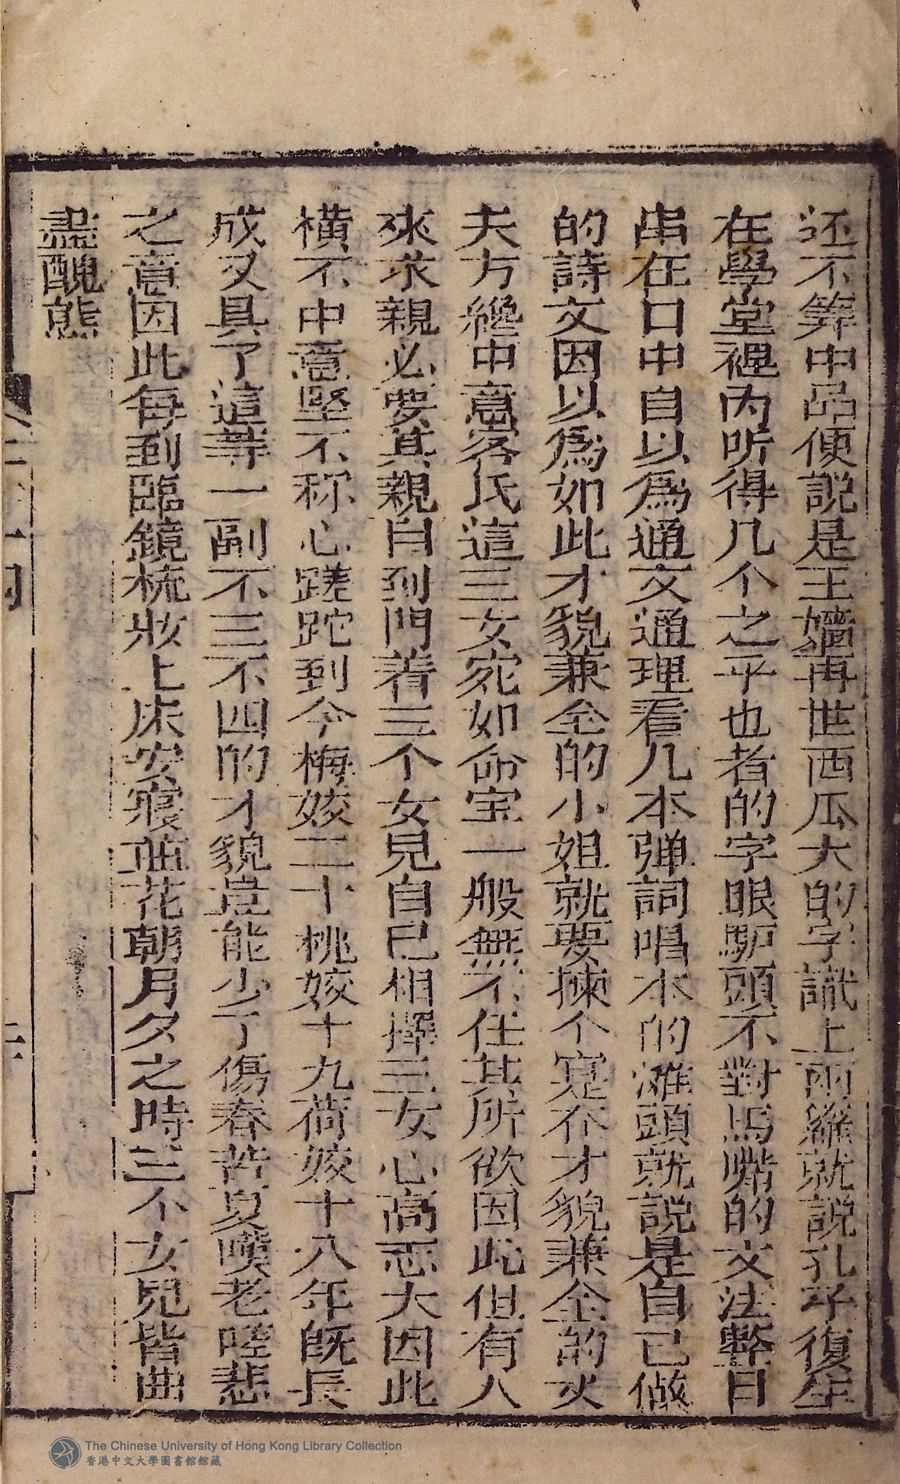 还不筭中品便説是王嬙再世西瓜大的字識上兩籮就說孔子復生
在學堂裡內听得几个之乎也者的字眼驴頭不對馬嘴的文法整日
串在口中自以爲通文通理看几本弹詞唱本的滩頭就説是自己做
的詩文因以爲如此才貌兼全的小姐就要揀个寔不才貌兼全的丈
夫方纔中意客氏這三女宛如命宝一般無不任其所欲因此但有人
來求親必要其親自到門着三个女兒自己相擇三女心高志大因此
橫不中意堅不称心蹉跎到今梅姣二十桃姣十九荷姣十八年既長
成又具了這等一副不三不四的才貌豈能少了傷春苦夏嘆老嗟悲
之意因此每到臨鏡梳妝上床安寢並花朝月夕之時三个女兒皆曲
盡醜態
二
The Chinese University of Hong Kong Library Collection
香港中文大學圖書館館藏